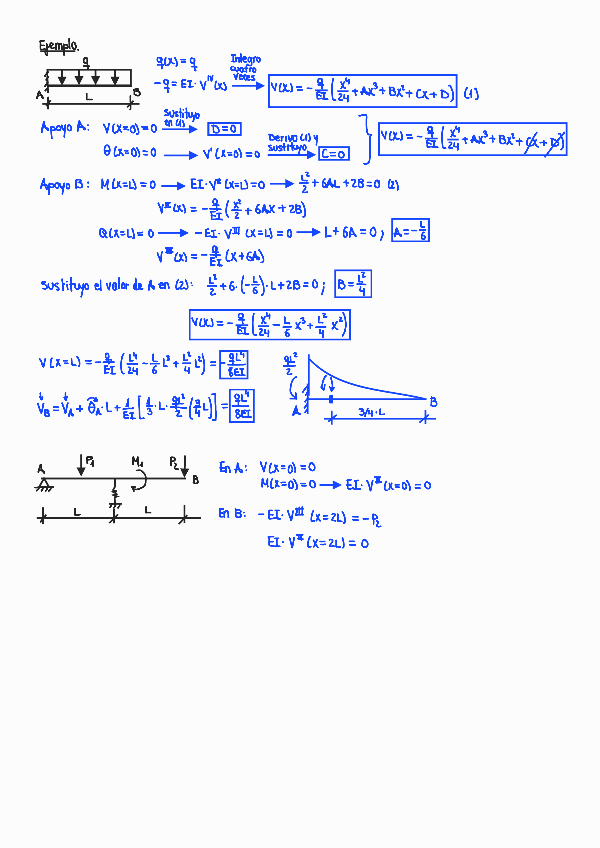 Ejemplo.
q
A L B
q(x) = q
-q = EI · V^IV (x) Integro cuatro veces → V(x) = - q/EI ( x⁴/24 + Ax³ + Bx² + Cx + D ) (1)
Apoyo A: V(x=0) = 0 Sustituyo en (1) → D=0
θ(x=0) = 0 → V'(x=0) = 0 Derivo (1) y sustituyo → C=0
V(x) = - q/EI ( x⁴/24 + Ax³ + Bx² + Cx + D )
Apoyo B: M(x=L) = 0 → EI · V^II (x=L) = 0 → L²/2 + 6AL + 2B = 0 (2)
V^II (x) = - q/EI ( x²/2 + 6Ax + 2B )
Q(x=L) = 0 → - EI · V^III (x=L) = 0 → L + 6A = 0 ; A = - L/6
V^III (x) = - q/EI (x + 6A)
Sustituyo el valor de A en (2): L²/2 + 6 · (- L/6) · L + 2B = 0 ; B = L²/4
V(x) = - q/EI ( x⁴/24 - L/6 x³ + L²/4 x² )
V(x=L) = - q/EI ( L⁴/24 - L/6 L³ + L²/4 L² ) = - qL⁴/8EI
V_B = V_A + θ_A · L + 1/EI [ 1/3 · L · qL²/2 ( 3/4 L ) ] = qL⁴/8EI
qL²/2
A B
3/4 · L
A P₁ M₁ P₂ B
L L
En A: V(x=0) = 0
M(x=0) = 0 → EI · V^II (x=0) = 0
En B: - EI · V^III (x=2L) = - P₂
EI · V^II (x=2L) = 0